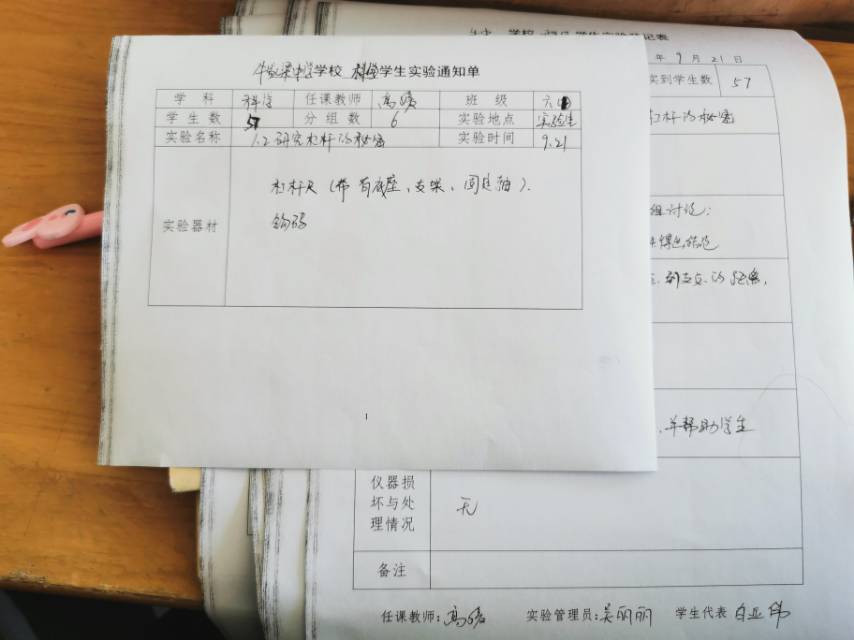 学校 科学学生实验通知单
学科 科学 任课教师 高 班级 六
学生数 57 分组数 6 实验地点 实验室
实验名称 1.2研究杠杆的秘密 实验时间 9.21
实验器材
杠杆尺（带有底座、支架、固定轴）.
钩码
1
学校 学生实验登记表
年9月21日
实到学生数 57
杠杆的秘密
组讨论：
得出结论
到支点的距离，
并帮助学生
仪器损坏与处理情况 无
备注
任课教师：高 实验管理员：吴丽丽 学生代表 白亚伟